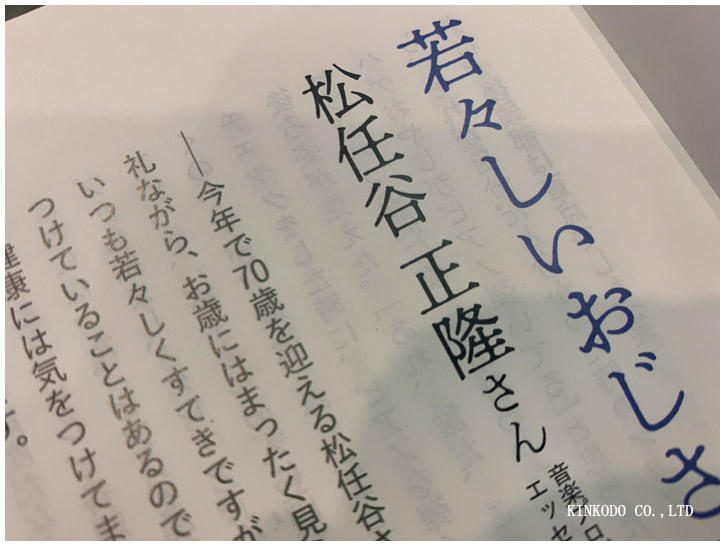 若々しいおじさ
松任谷 正隆さん
音楽プロ
エッセ
――今年で70歳を迎える松任谷さ
礼ながら、お歳にはまったく見
いつも若々しくすてきですが
つけていることはあるので
健康には気をつけてま
す。
KINKODO CO.,LTD